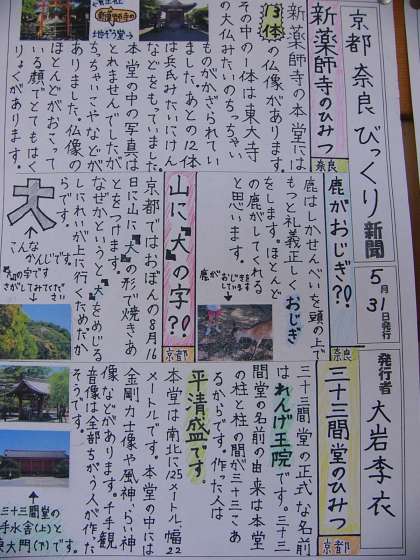 京都 奈良 びっくり 新聞
5月31日発行
発行者 大岩李衣
新薬師寺のひみつ
奈良
新薬師寺の本堂には
13体の仏像があります。
その中の一体は東大寺
の大仏みたいのちっちゃい
ものが、かざられてい
ました。あとの12体
は兵氏みたいにけん
などをもっていました。
本堂の中の写真は
とれませんでしたが
ちっちゃいこやなどが
ありました。仏像の
ほとんどがおこって
いる顔でとてもはく
りょくがあります。
新薬師寺の
地ぞう堂→
鹿がおじぎ?!
奈良
鹿はしかせんべいを頭の上で
もっと礼義正しくおじぎ
をします。ほとんど
の鹿がしてくれる
と思います。
鹿がおじぎを
しています
山に「大」の字?!
京都
京都ではおぼんの8月16
日に山に「大」の形で焼きあ
とをつけます。
なぜかというと「大」をめじる
しにれいが上に行くためだか
らです。
大
こんな
かんじです。
さがしてみてください
三十三間堂のひみつ
京都
三十三間堂の正式な名前
はれんげ王院です。三十三
間堂の名前の由来は本堂
の柱と柱の間が三十三こあ
るからです。作った人は
平清盛です。
本堂は南北に125メートル、幅22
メートルです。本堂の中には
金剛力士像や風神、らい神
像などがあります。千手観
音像は全部ちがう人が作た
そうです。
三十三間堂の
手水舎(上)と
東大門(下)です。